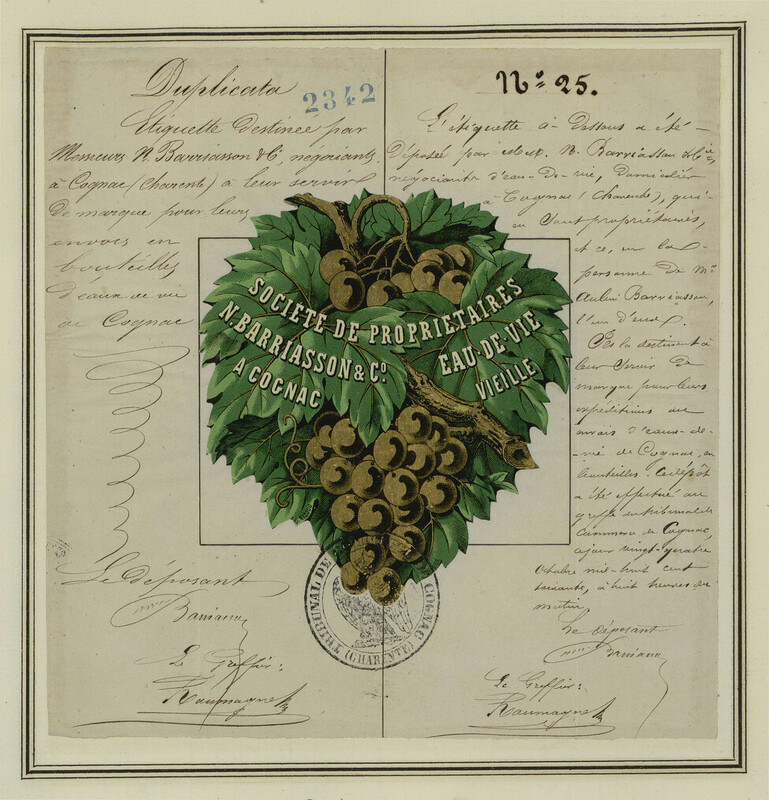 Duplicata
2342
Etiquette destinée par
Messieurs N. Barriasson & Cie négociants
à Cognac (Charente) à leur servir
de marque pour leurs
envois en
bouteilles
d'eaux de vie
de Cognac
Le déposant
Barriasson
Le Greffier:
No 25.
L'étiquette ci-dessous a été
Déposée par MM. N. Barriasson & Cie,
négociants d'eau-de-vie, domiciliés
à Cognac (Charente), qui
en sont propriétaires,
et ce, en la
personne de Mr
Barriasson,
l'un d'eux.
Ils la destinent à
leur servir de
marque pour leurs
expéditions ou
envois d'eaux-de-
-vie de Cognac, en
bouteilles. Ce dépôt
a été effectué au
greffe du tribunal de
Commerce de Cognac,
ce jour vingt-quatre
Octobre mil-huit cent
soixante, à huit heures du
matin.
Le déposant
Barriasson
Le Greffier:
SOCIÉTÉ DE PROPRIÉTAIRES
N. BARRIASSON & Co.
A COGNAC
EAU-DE-VIE
VIEILLE
TRIBUNAL DE COGNAC
(CHARENTE)